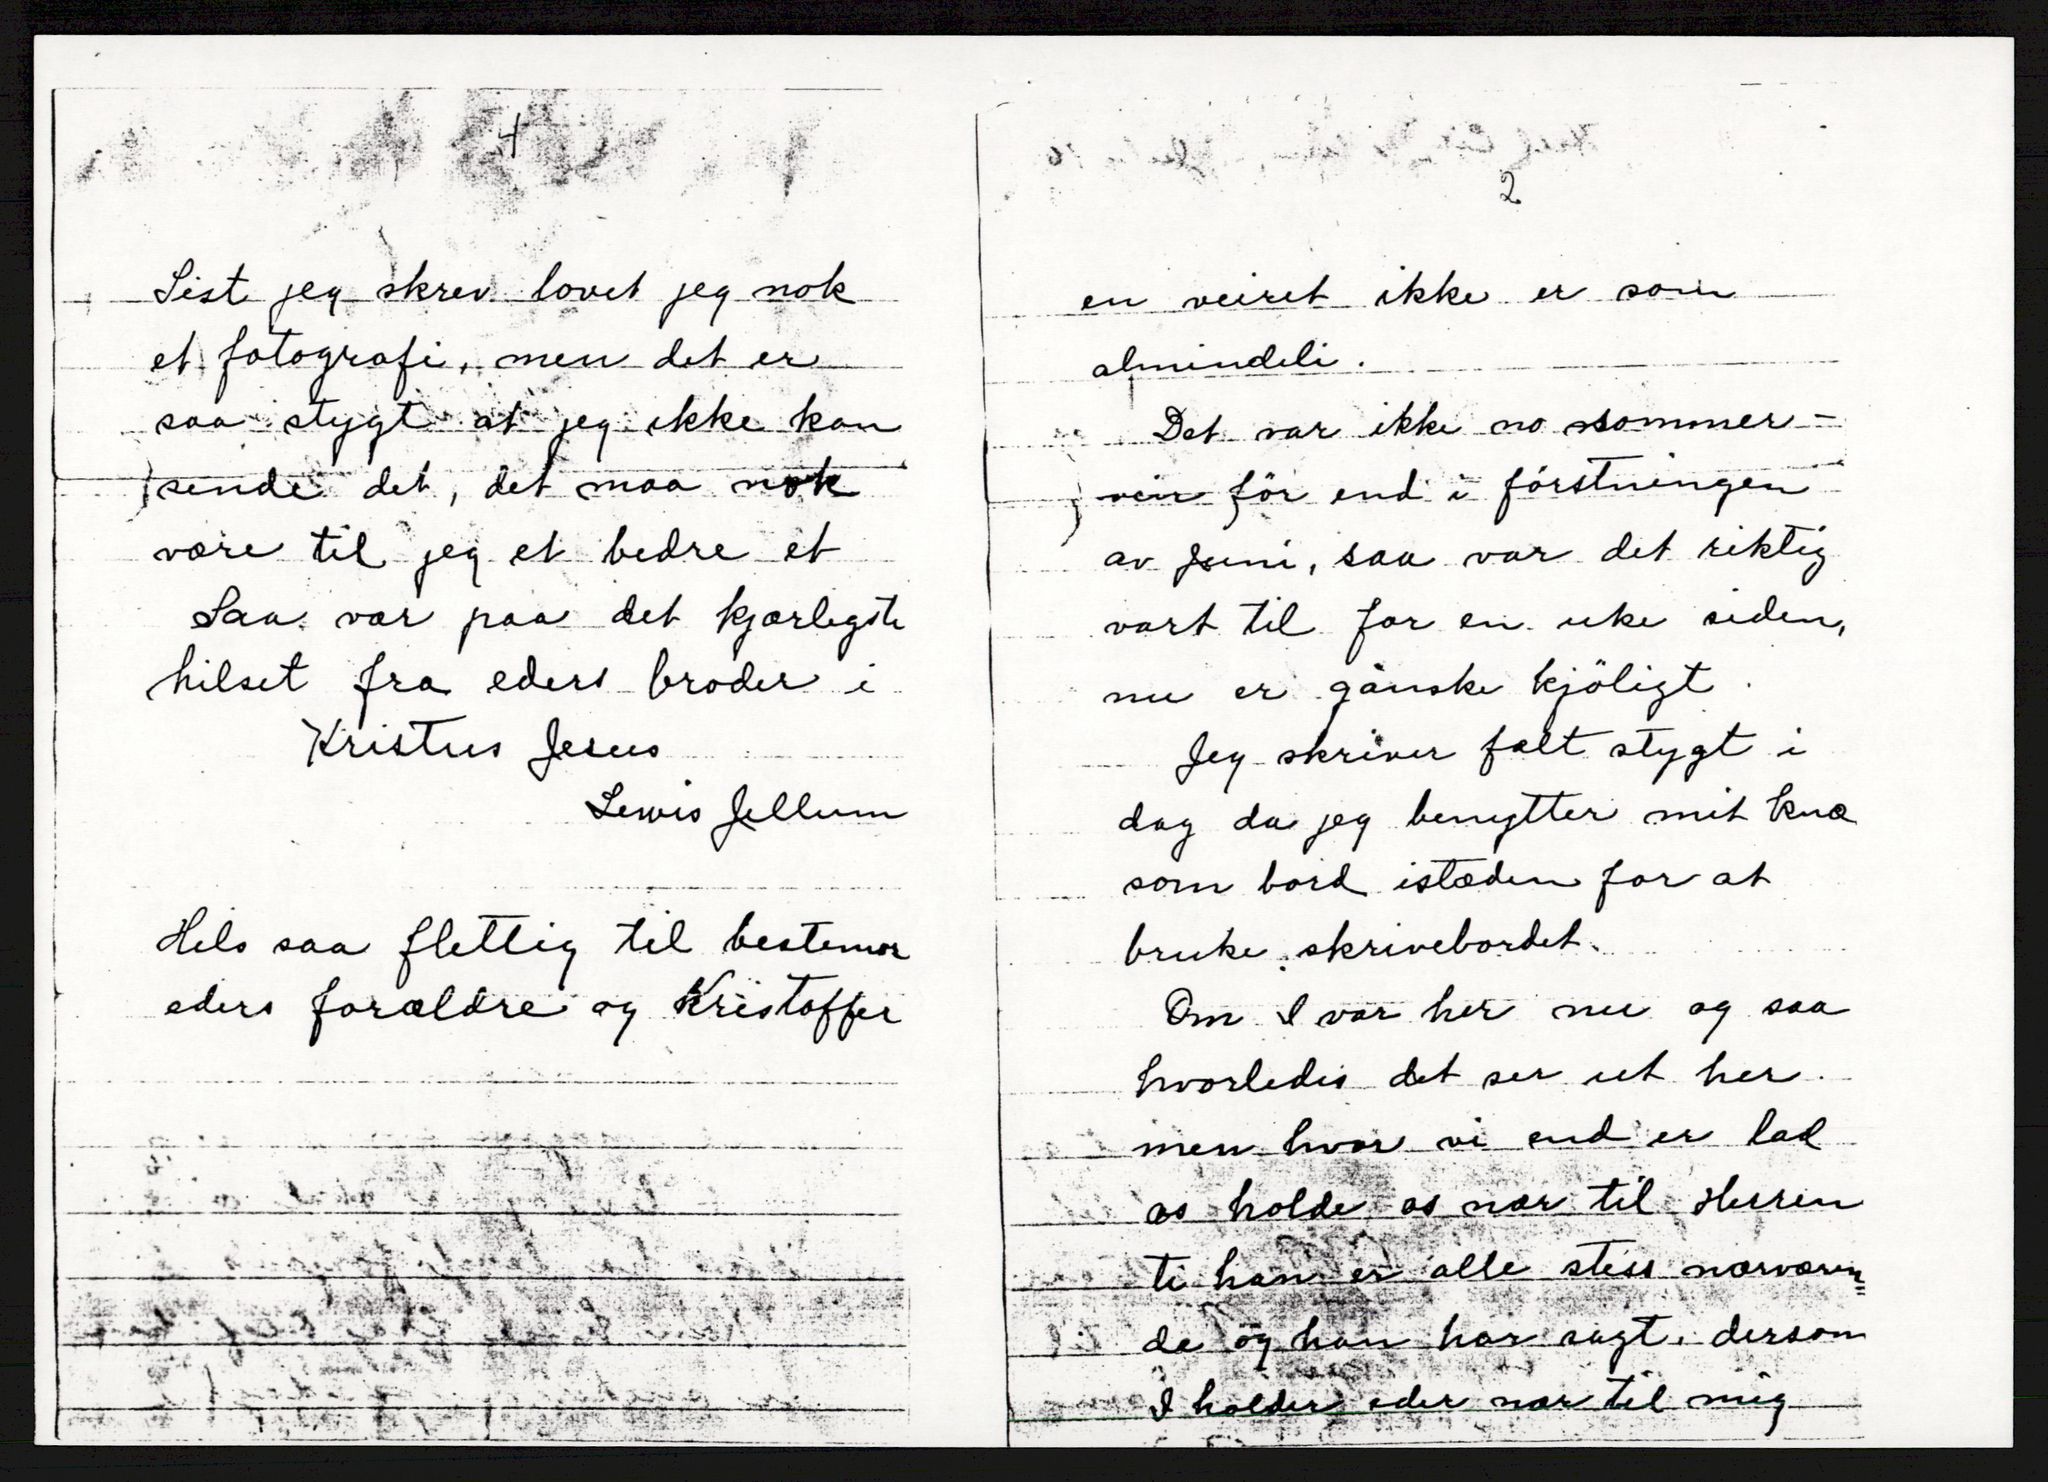 4
Sist jeg skrev lovet jeg nok
et fotografi, men det er
saa stygt at jeg ikke kan
sende det, det maa nok
være til jeg et bedre et
Saa vær paa det kjærligste
hilset fra eders broder i
Kristus Jesus
Lewis Jellum
Hils saa flettig til bestemor
eders forældre og Kristoffer
2
en veiret ikke er som
almindeli.
Det var ikke no sommer-
veir för end i förstningen
av Juni, saa var det riktig
vart til for en uke siden,
nu er ganske kjöligt.
Jeg skriver fælt stygt i
dag da jeg benytter mit knæ
som bord istæden for at
bruke skrivebordet.
Om I var her nu og saa
hvorledis det ser ut her.
men hvor vi end er lad
os holde os nær til Herren
ti han er alle stess nærværen=
de og han har sagt, dersom
I holder eder nær til mig